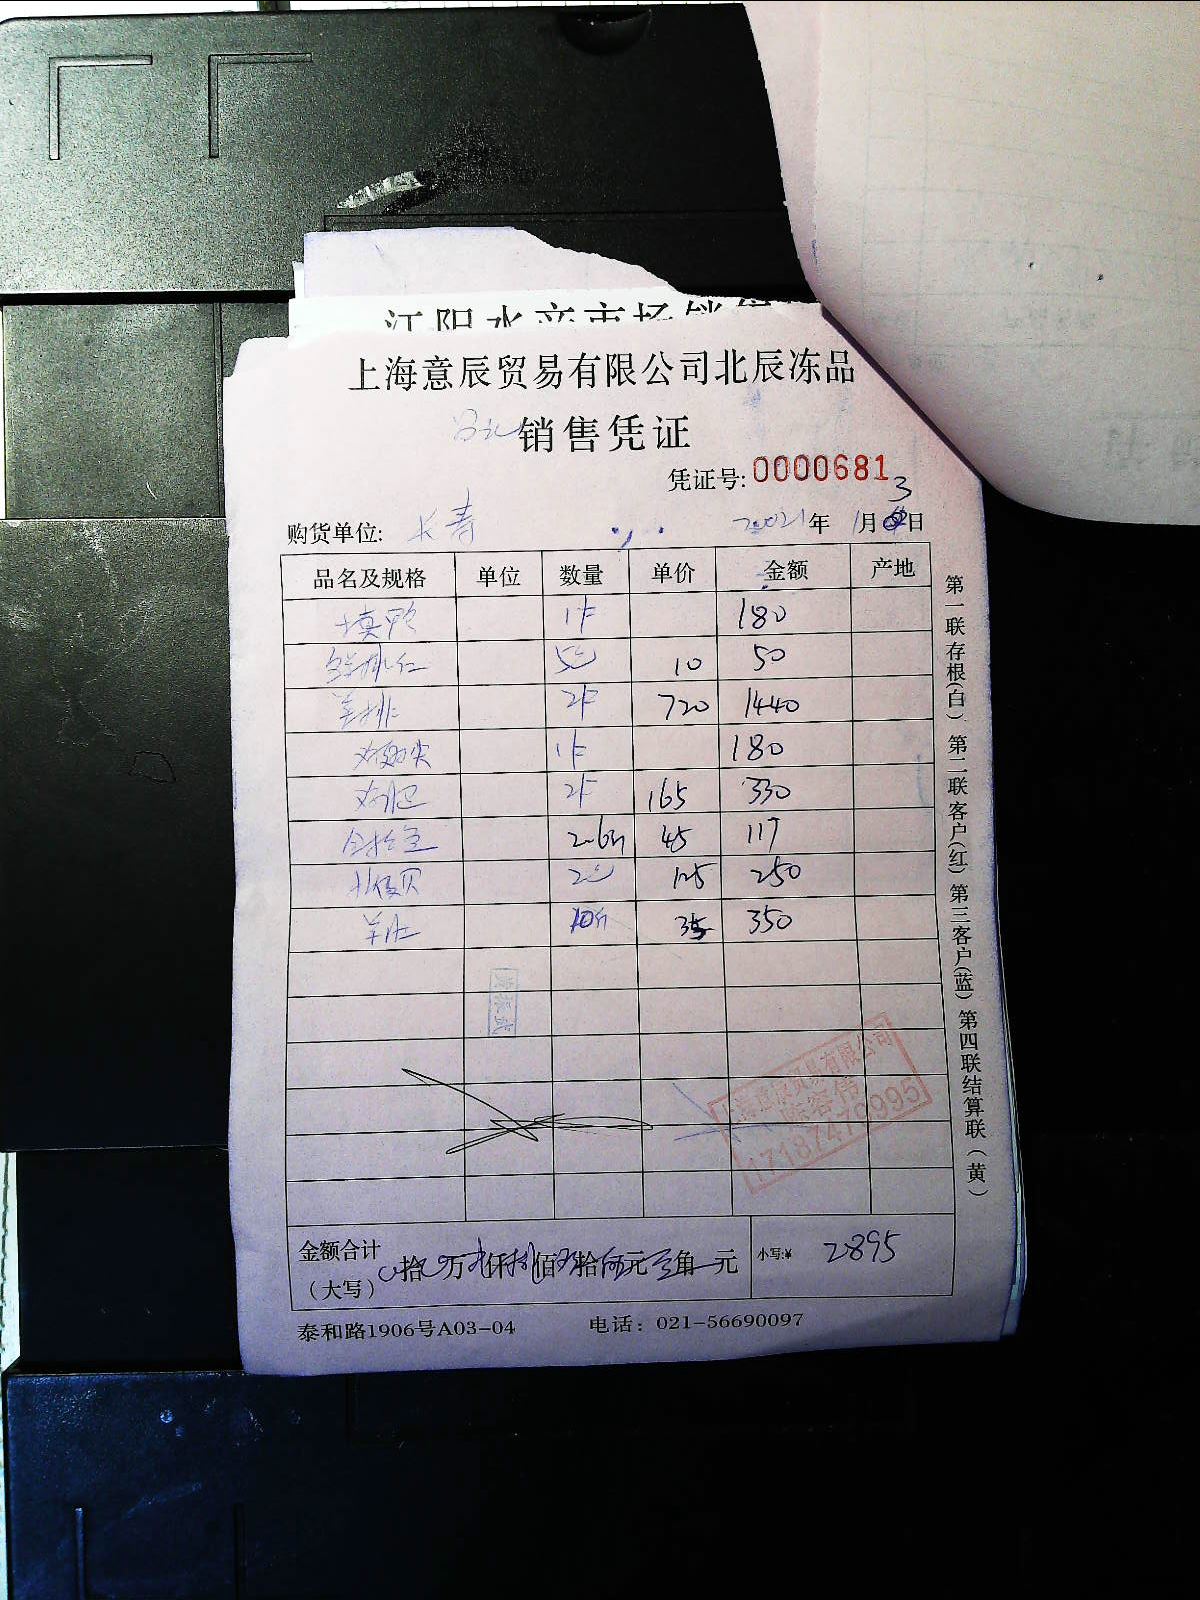 江阳水产市场销售
上海意辰贸易有限公司北辰冻品
销售凭证
凭证号: 0000681
购货单位: 长寿 2021年 1月3日
品名及规格 单位 数量 单价 金额 产地
填鸭 1件 180
5包 10 50
羊排 2件 720 1440
鸡翅尖 1件 180
鸡肫 2件 165 330
2.6斤 45 117
北极贝 2包 125 250
羊肚 10斤 35 350
上海意辰贸易有限公司
17187476995
金额合计
(大写) 拾 万 仟 佰 拾 元 角 元 小写:¥ 2895
泰和路1906号A03-04 电话: 021-56690097
第一联存根(白) 第二联客户(红) 第三客户(蓝) 第四联结算联(黄)